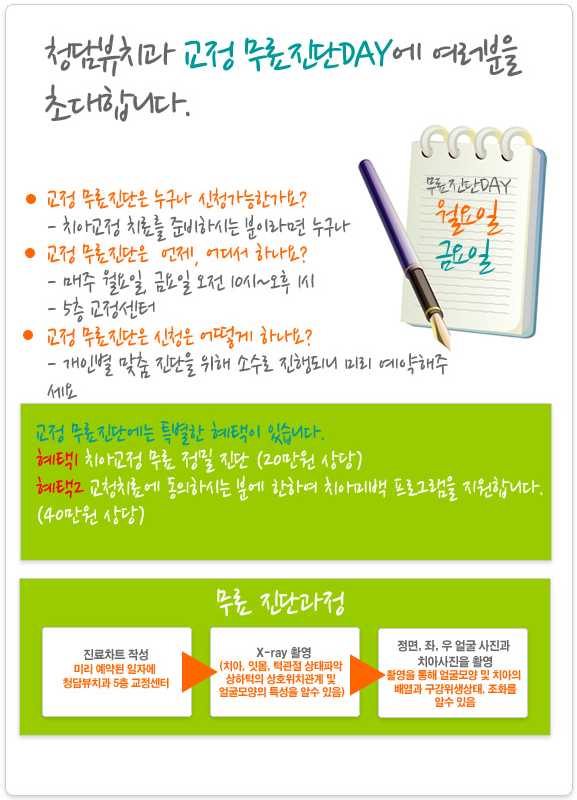 청담뷰치과 교정 무료진단DAY에 여러분을
초대합니다.
무료진단DAY
월요일
금요일
교정 무료진단은 누구나 신청가능한가요?
- 치아교정 치료를 준비하시는 분이라면 누구나
교정 무료진단은 언제, 어디서 하나요?
- 매주 월요일, 금요일 오전 10시~오후 1시
- 5층 교정센터
교정 무료진단은 신청은 어떻게 하나요?
- 개인별 맞춤 진단을 위해 소수로 진행되니 미리 예약해주
세요
교정 무료진단에는 특별한 혜택이 있습니다.
혜택1 치아교정 무료 정밀 진단 (20만원 상당)
혜택2 교정치료에 동의하시는 분에 한하여 치아미백 프로그램을 지원합니다.
(40만원 상당)
무료 진단과정
진료차트 작성
미리 예약된 일자에
청담뷰치과 5층 교정센터
X-ray 촬영
(치아, 잇몸, 턱관절 상태파악
상하턱의 상호위치관계 및
얼굴모양의 특성을 알수 있음)
정면, 좌, 우 얼굴 사진과
치아사진을 촬영
촬영을 통해 얼굴모양 및 치아의
배열과 구강위생상태, 조화를
알수 있음